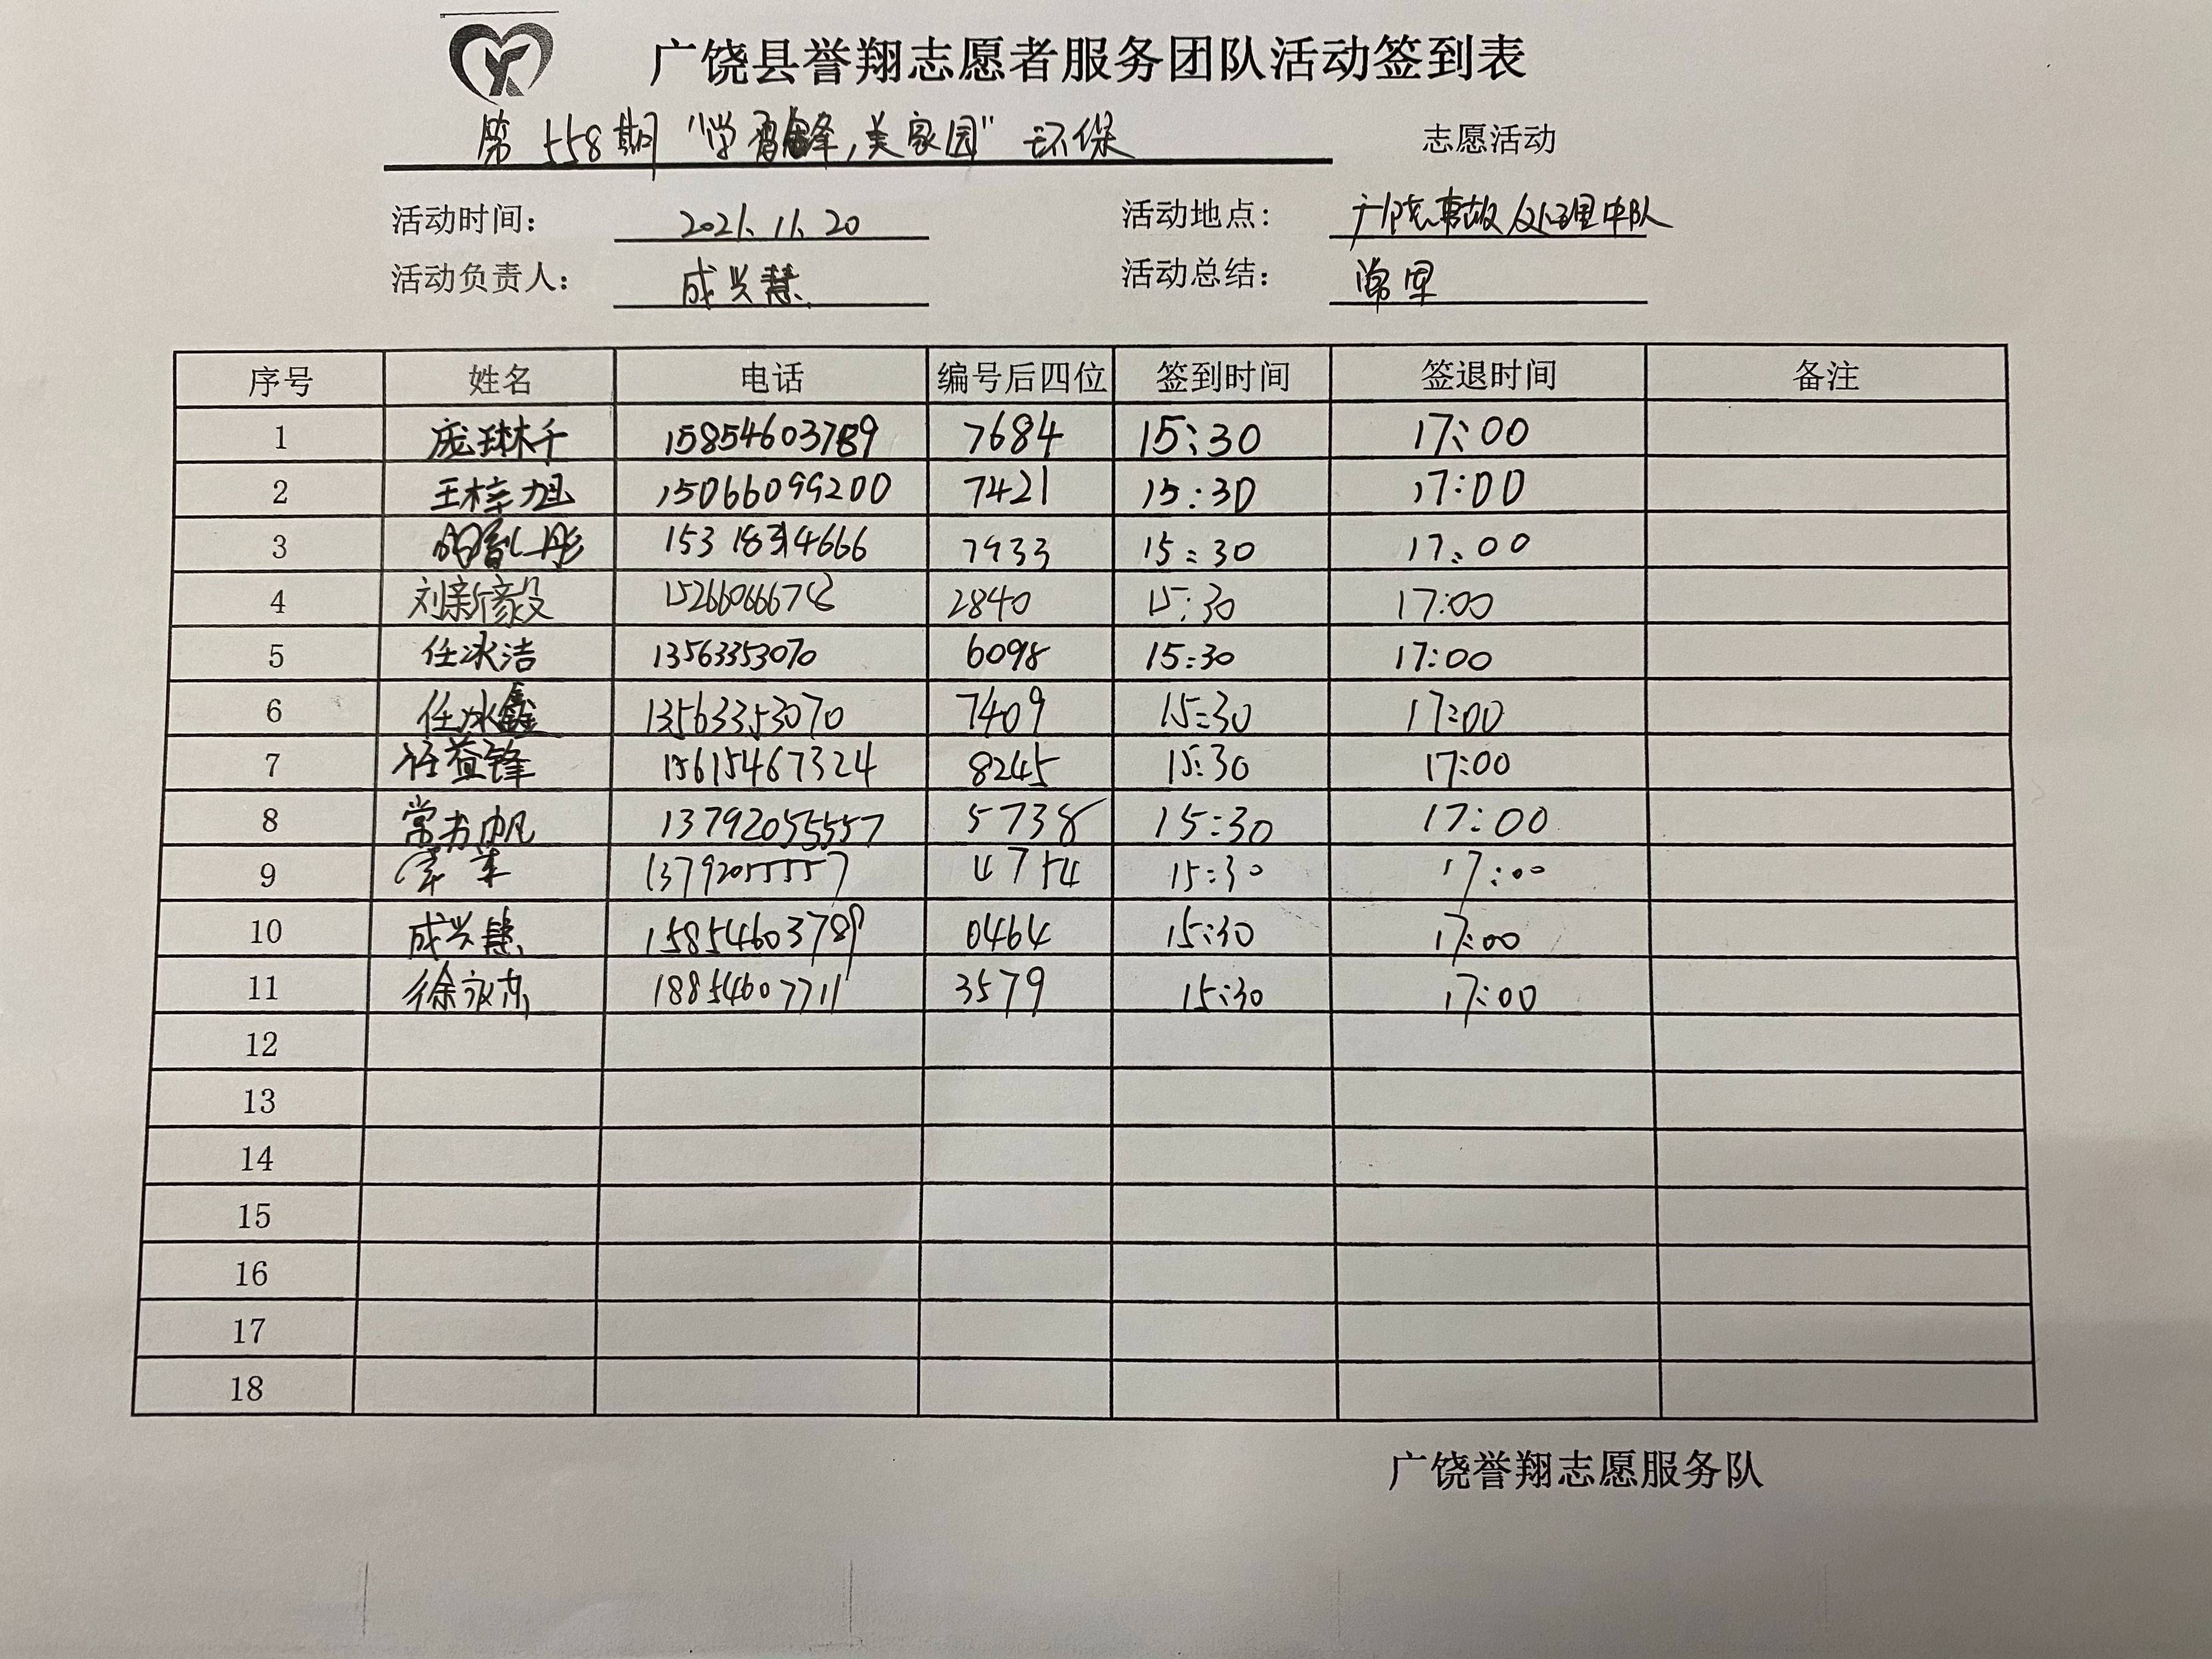 广饶县誉翔志愿者服务团队活动签到表
第558期 "学雷锋,美家园" 环保 志愿活动
活动时间: 2021.11.20 活动地点: 广饶事故处理中队
活动负责人: 成兴慧 活动总结:
序号 姓名 电话 编号后四位 签到时间 签退时间 备注
1 庞琳千 15854603789 7684 15:30 17:00
2 王梓旭 15066099200 7421 15:30 17:00
3 7933 15:30 17:00
4 刘新毅 2840 15:30 17:00
5 任冰洁 13563353070 6098 15:30 17:00
6 任冰鑫 13563353070 7409 15:30 17:00
7 任益锋 15615467324 8245 15:30 17:00
8 常书帆 13792055557 5738 15:30 17:00
9 13792055557 4754 15:30 17:00
10 成兴慧 15854603789 0464 15:30 17:00
11 徐永东 18854607711 3579 15:30 17:00
12
13
14
15
16
17
18
广饶誉翔志愿服务队